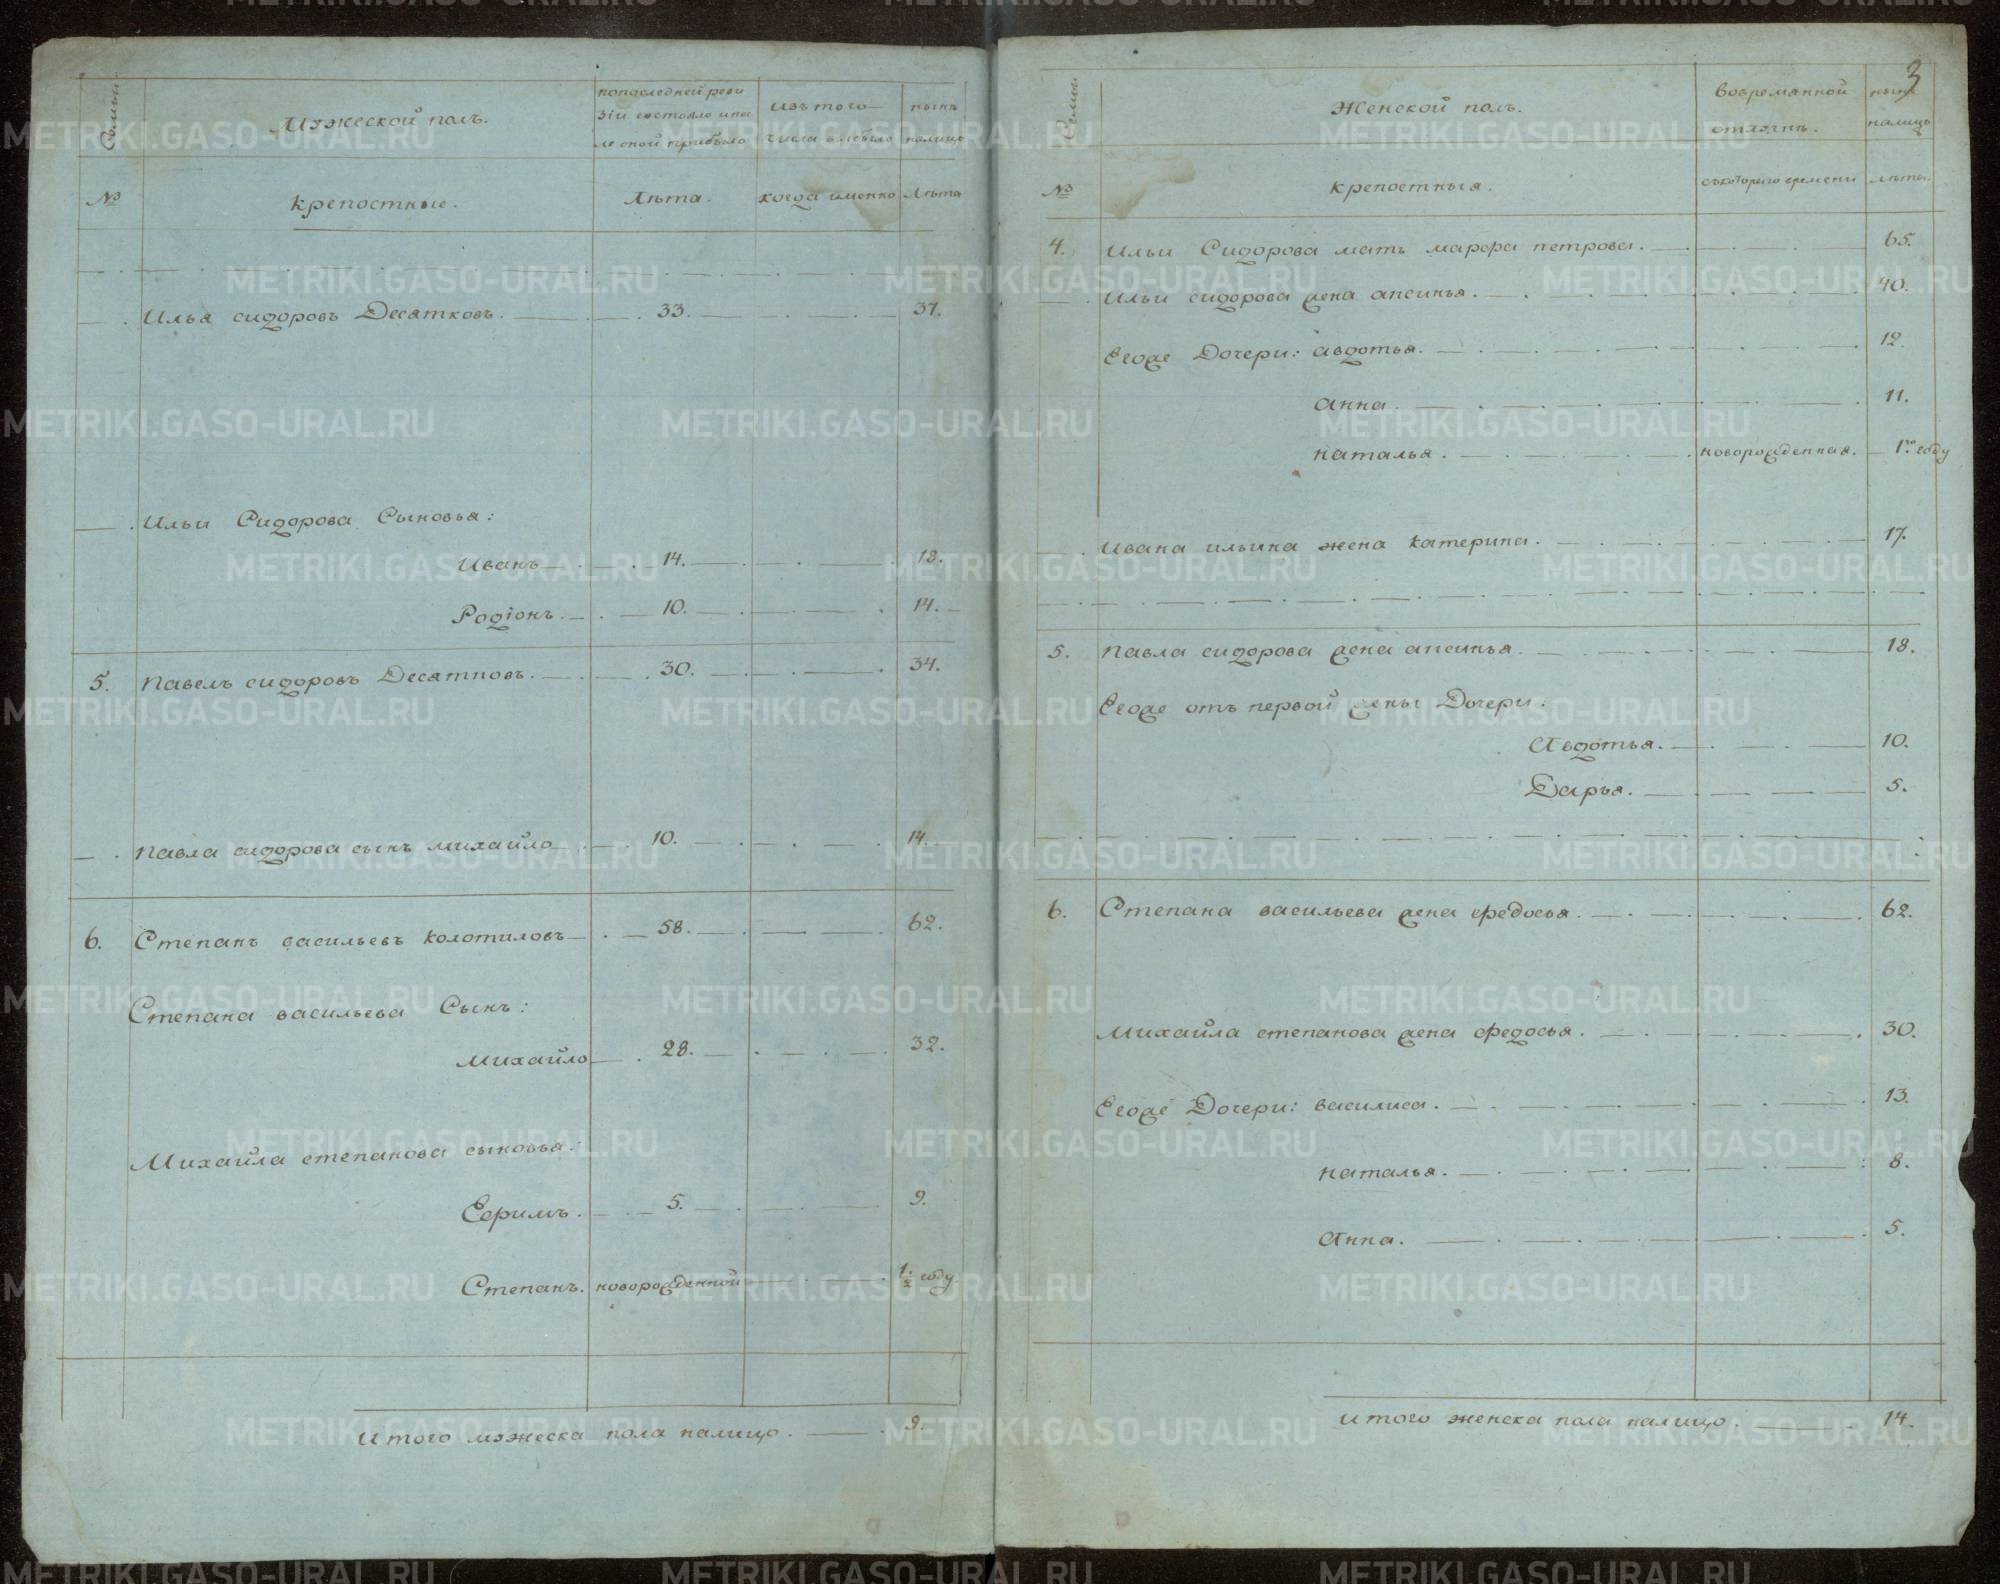 Семьи
Мужеской полъ.
попоследней реви
зіи состояло и по
ле оной прибыло
изъ того
числа выбыло
нынѣ
налицо
№
крепостные.
Лѣта.
когда именно
Лѣта
Илья сидоровъ Десятковъ. 33. 37.
Ильи Сидорова Сыновья:
Иванъ 14. 18.
Родіонъ. 10. 14.
5. Павелъ сидоровъ Десятковъ. 30. 34.
Павла сидорова сынъ михайло 10. 14.
6. Степанъ васильевъ колотиловъ 58. 62.
Степана васильева Сынъ:
Михайло 28. 32.
Михайла степанова сыновья:
Ефримъ. 5. 9.
Степанъ. новорожденной 1/2 году
Итого мужеска пола налицо. 9.
3
Семьи
Женской полъ.
вовремянной
отлучкѣ.
нынѣ
налицо
№
крепостныя.
съкоторого времени
лѣты.
4. Ильи Сидорова мать марфа петрова. 65.
Ильи сидорова жена аксинья. 40.
Егоже Дочери: авдотья. 12.
анна. 11.
наталья. новорожденная. 1го году
Ивана ильина жена катерина. 17.
5. Павла сидорова жена аксинья. 18.
Егоже отъ первой жены Дочери:
Авдотья. 10.
Дарья. 5.
6. Степана васильева жена федосья. 62.
Михайла степанова жена федосья. 30.
Егоже Дочери: василиса. 13.
наталья. 8.
Анна. 5.
Итого женска пола налицо. 14.
METRIKI.GASO-URAL.RU